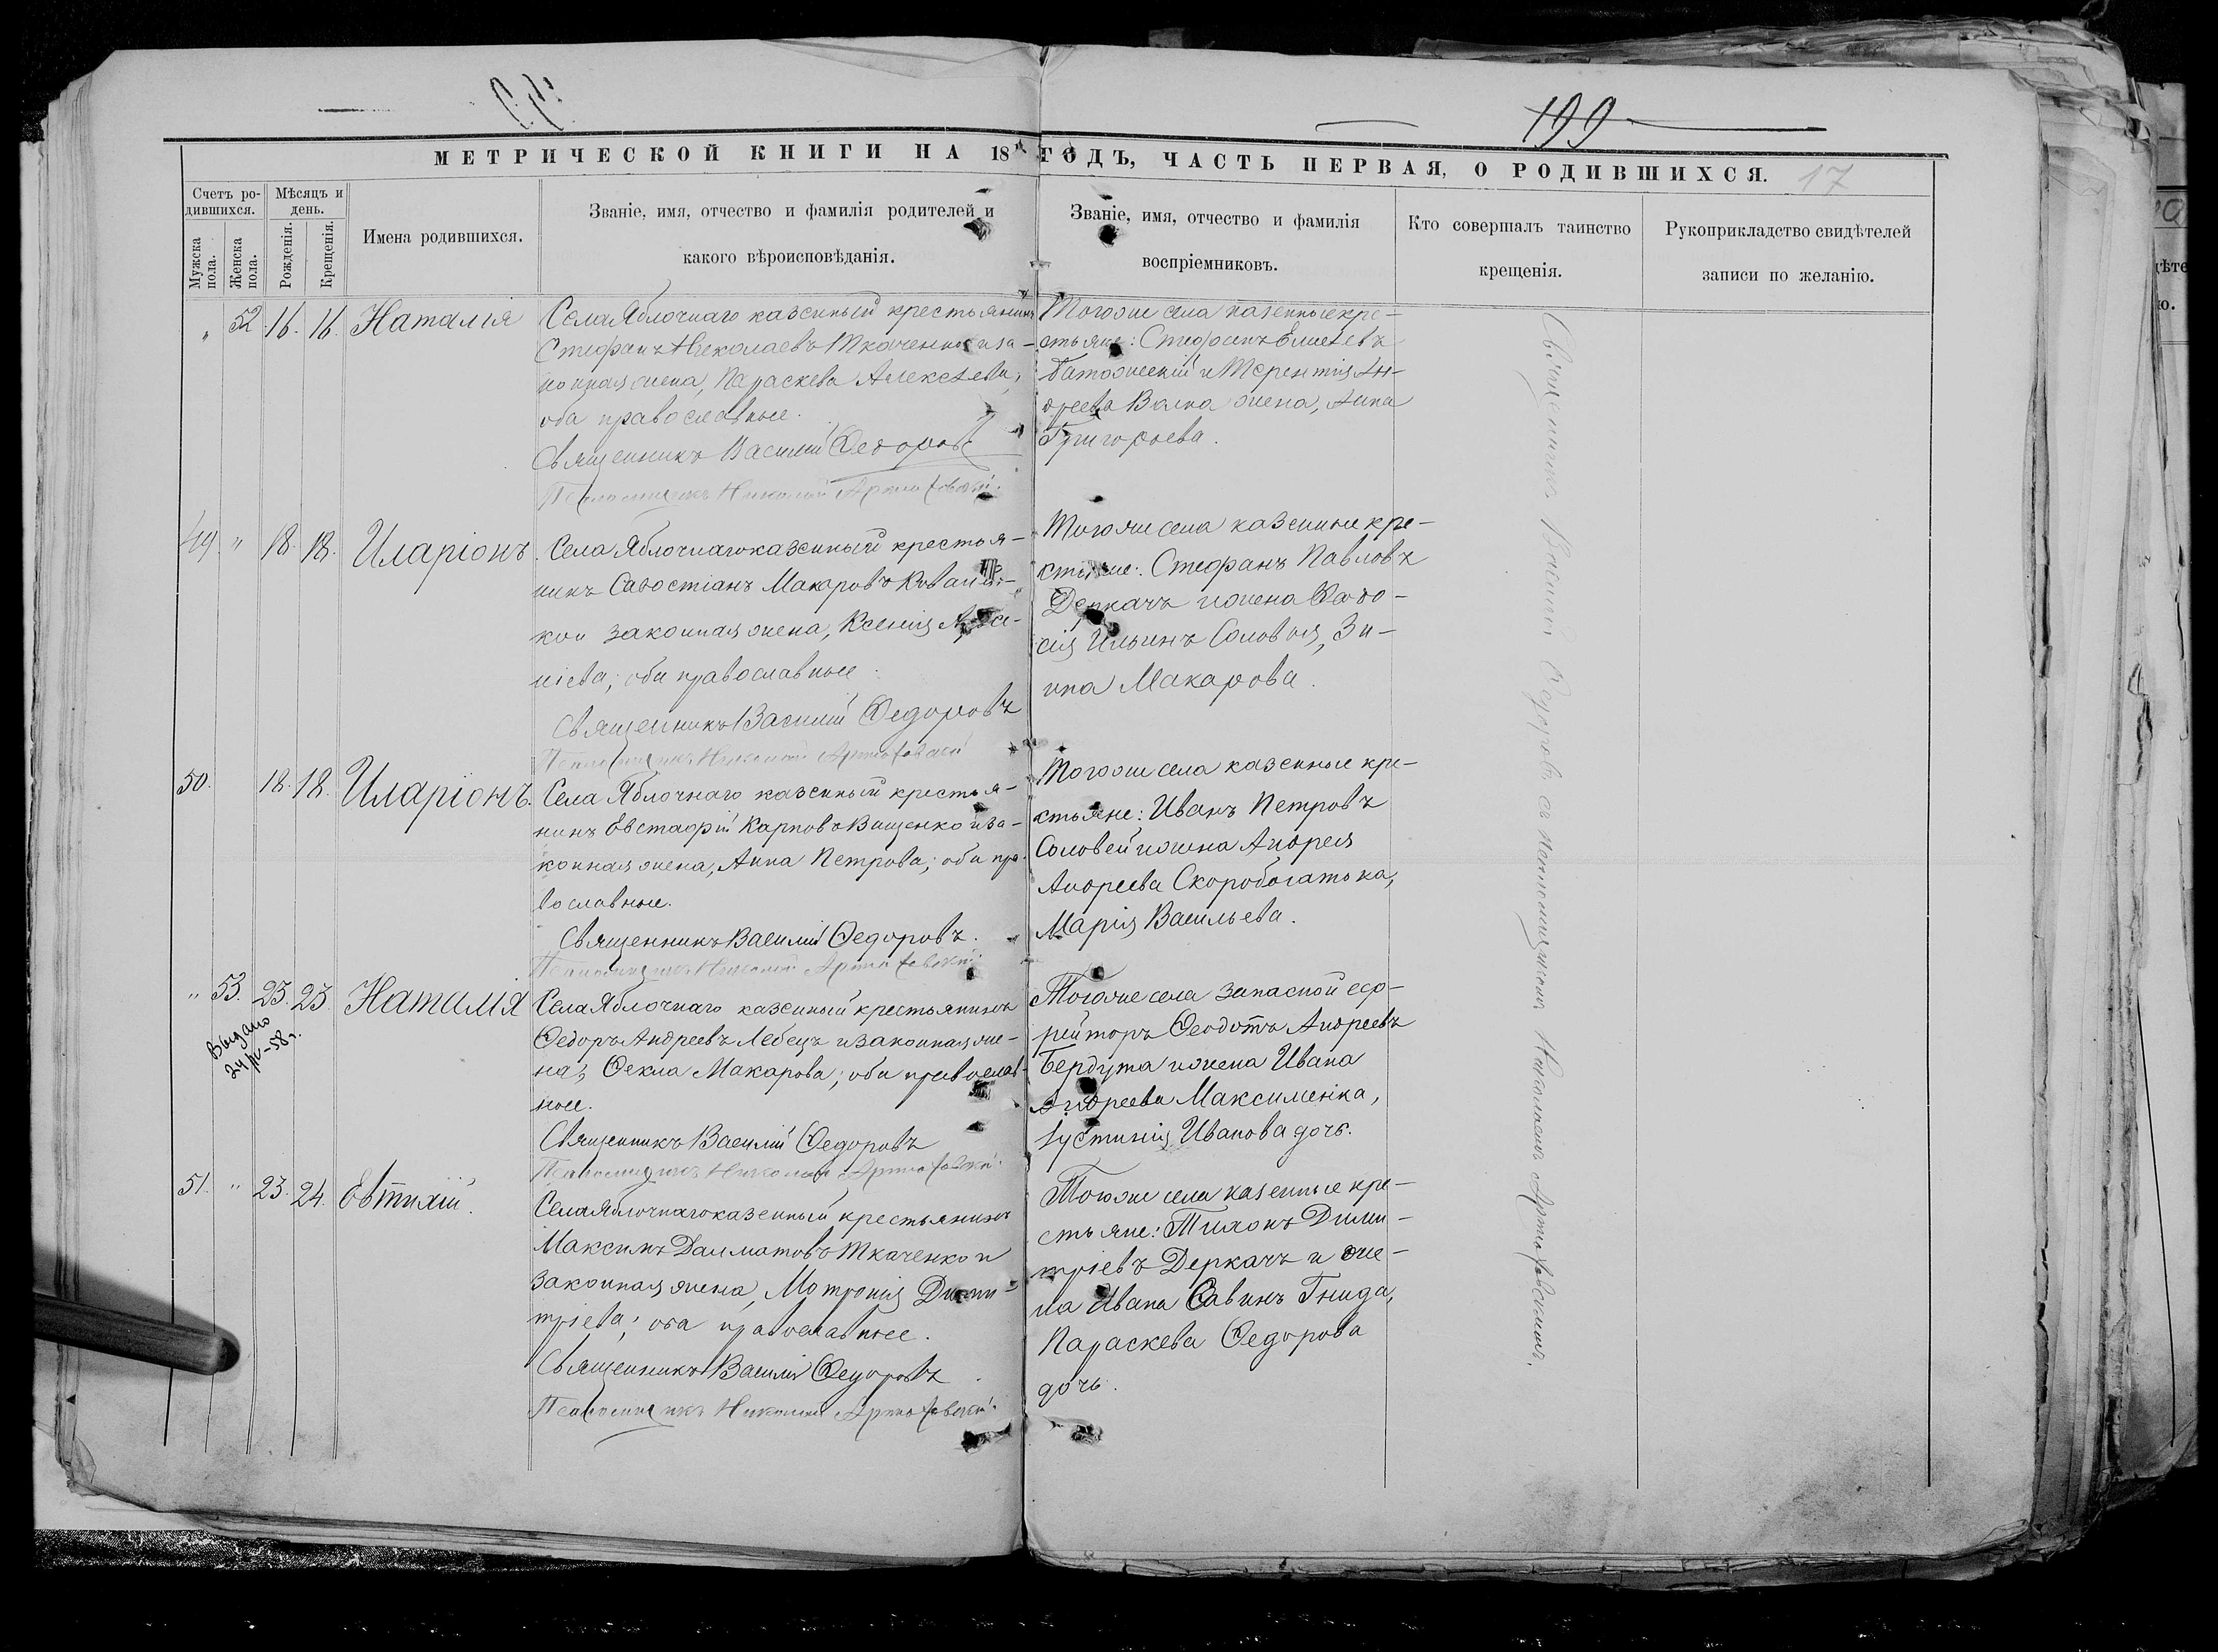 199
МЕТРИЧЕСКОЙ КНИГИ НА 18 ГОДЪ, ЧАСТЬ ПЕРВАЯ, О РОДИВШИХСЯ.
17
Счетъ родившихся.
Мужска пола.
Женска пола.
Мѣсяцъ и день.
Рожденія.
Крещенія.
Имена родившихся.
Званіе, имя, отчество и фамилія родителей и
какого вѣроисповѣданія.
Званіе, имя, отчество и фамилія
воспріемниковъ.
Кто совершалъ таинство
крещенія.
Рукоприкладство свидѣтелей
записи по желанію.
" 52 16. 16. Наталія
Села Яблочнаго казенный крестьянинъ
Стефанъ Николаевъ Ткаченко и за-
конная жена, Параскева Алексѣева,
оба православные.
Священникъ Василій Федоровъ
Псаломщикъ Николай
Тогоже села казенные кре-
стьяне: Стефанъ Елисеевъ
и Терентія Ан-
дреева Волка жена, Анна
Григорьева.
49 " 18. 18. Иларіонъ.
Села Яблочнаго казенный крестья-
нинъ Савостіанъ Макаровъ
законная жена, Ксенія
оба православные
Священникъ Василій Федоровъ
Псаломщикъ Николай
Тогоже села казенные кре-
стьяне: Стефанъ Павловъ
Деркачъ и жена Феодо-
сія Ильина Соловья, Зи-
на Макарова.
50. 18. 18. Иларіонъ.
Села Яблочнаго казенный крестья-
нинъ Евстафій Карповъ Ващенко и за-
конная жена, Анна Петрова; оба пра-
вославные.
Священникъ Василій Федоровъ.
Псаломщикъ Николай
Тогоже села казенные кре-
стьяне: Иванъ Петровъ
Соловей и жена Андрея
Андреева Скоробогатька,
Марія Васильева.
" 53. 23. 23. Наталія
Выдано
24/IV-58г.
Села Яблочнаго казенный крестьянинъ
Федоръ Андреевъ Лебецъ и законная же-
на, Фекла Макарова; оба православ-
ные.
Священникъ Василій Федоровъ
Псаломщикъ Николай
Тогоже села запасной еф-
рейторъ Феодотъ Андреевъ
Бердута и жена Ивана
Андреева Максименка,
Іустинія Иванова дочь.
51. " 23. 24. Евтихій.
Села Яблочнаго казенный крестьянинъ
Максимъ Далматовъ Ткаченко и
законная жена, Мотронія Дими-
тріева; оба православные.
Священникъ Василій Федоровъ
Псаломщикъ Николай
Тогоже села казенные кре-
стьяне: Тихонъ Дими-
тріевъ Деркачъ и же-
на Ивана Савина Гнида,
Параскева Федорова
дочь.
Священникъ Василій Федоровъ съ псаломщикомъ Николаемъ